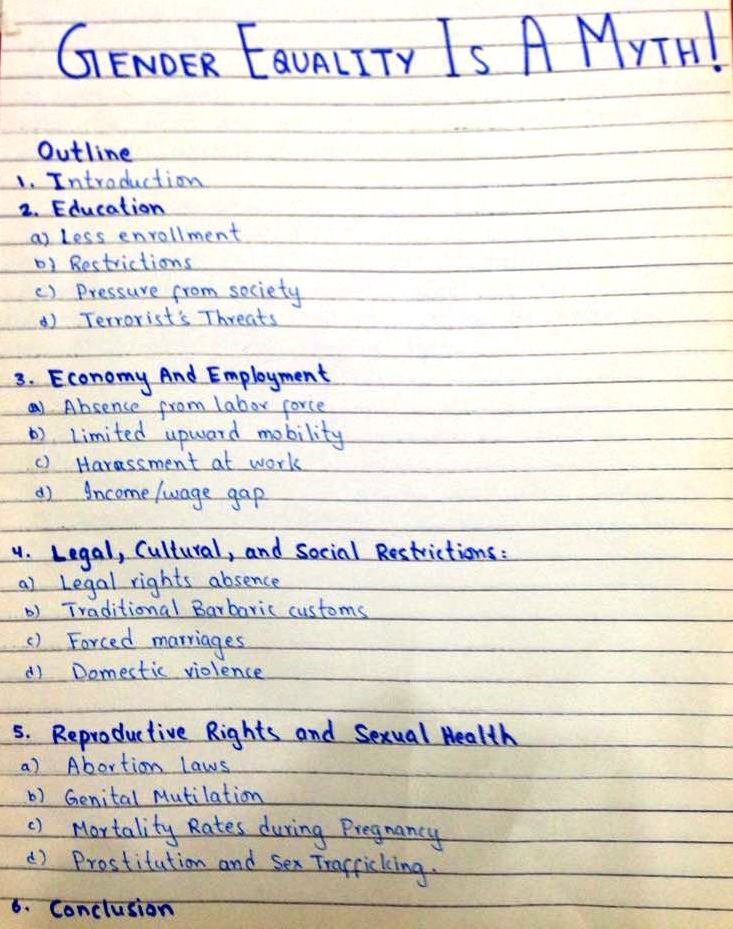 GENDER EQUALITY IS A MYTH!
Outline
1. Introduction
2. Education
a) Less enrollment
b) Restrictions
c) Pressure from society
d) Terrorist's Threats
3. Economy And Employment
a) Absence from labor force
b) Limited upward mobility
c) Harassment at work
d) Income/wage gap
4. Legal, Cultural, and Social Restrictions:
a) Legal rights absence
b) Traditional Barbaric customs
c) Forced marriages
d) Domestic violence
5. Reproductive Rights and Sexual Health
a) Abortion Laws
b) Genital Mutilation
c) Mortality Rates during Pregnancy
d) Prostitution and Sex Trafficking.
6. Conclusion